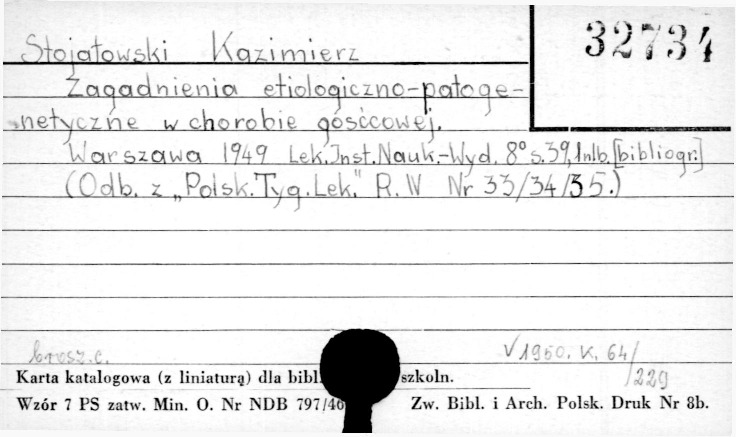 32734
Stojałowski Kazimierz
Zagadnienia etiologiczno-patoge-
netyczne w chorobie gośćcowej.
Warszawa 1949 Lek. Inst. Nauk.-Wyd. 8° s. 39, 1 nlb. [bibliogr.]
(Odb. z „Polsk. Tyg. Lek." R. IV Nr 33/34/35.)
brosz. c.
V 1950. K. 64/229
Karta katalogowa (z liniaturą) dla bibl szkoln.
Wzór 7 PS zatw. Min. O. Nr NDB 797/46 Zw. Bibl. i Arch. Polsk. Druk Nr 8b.